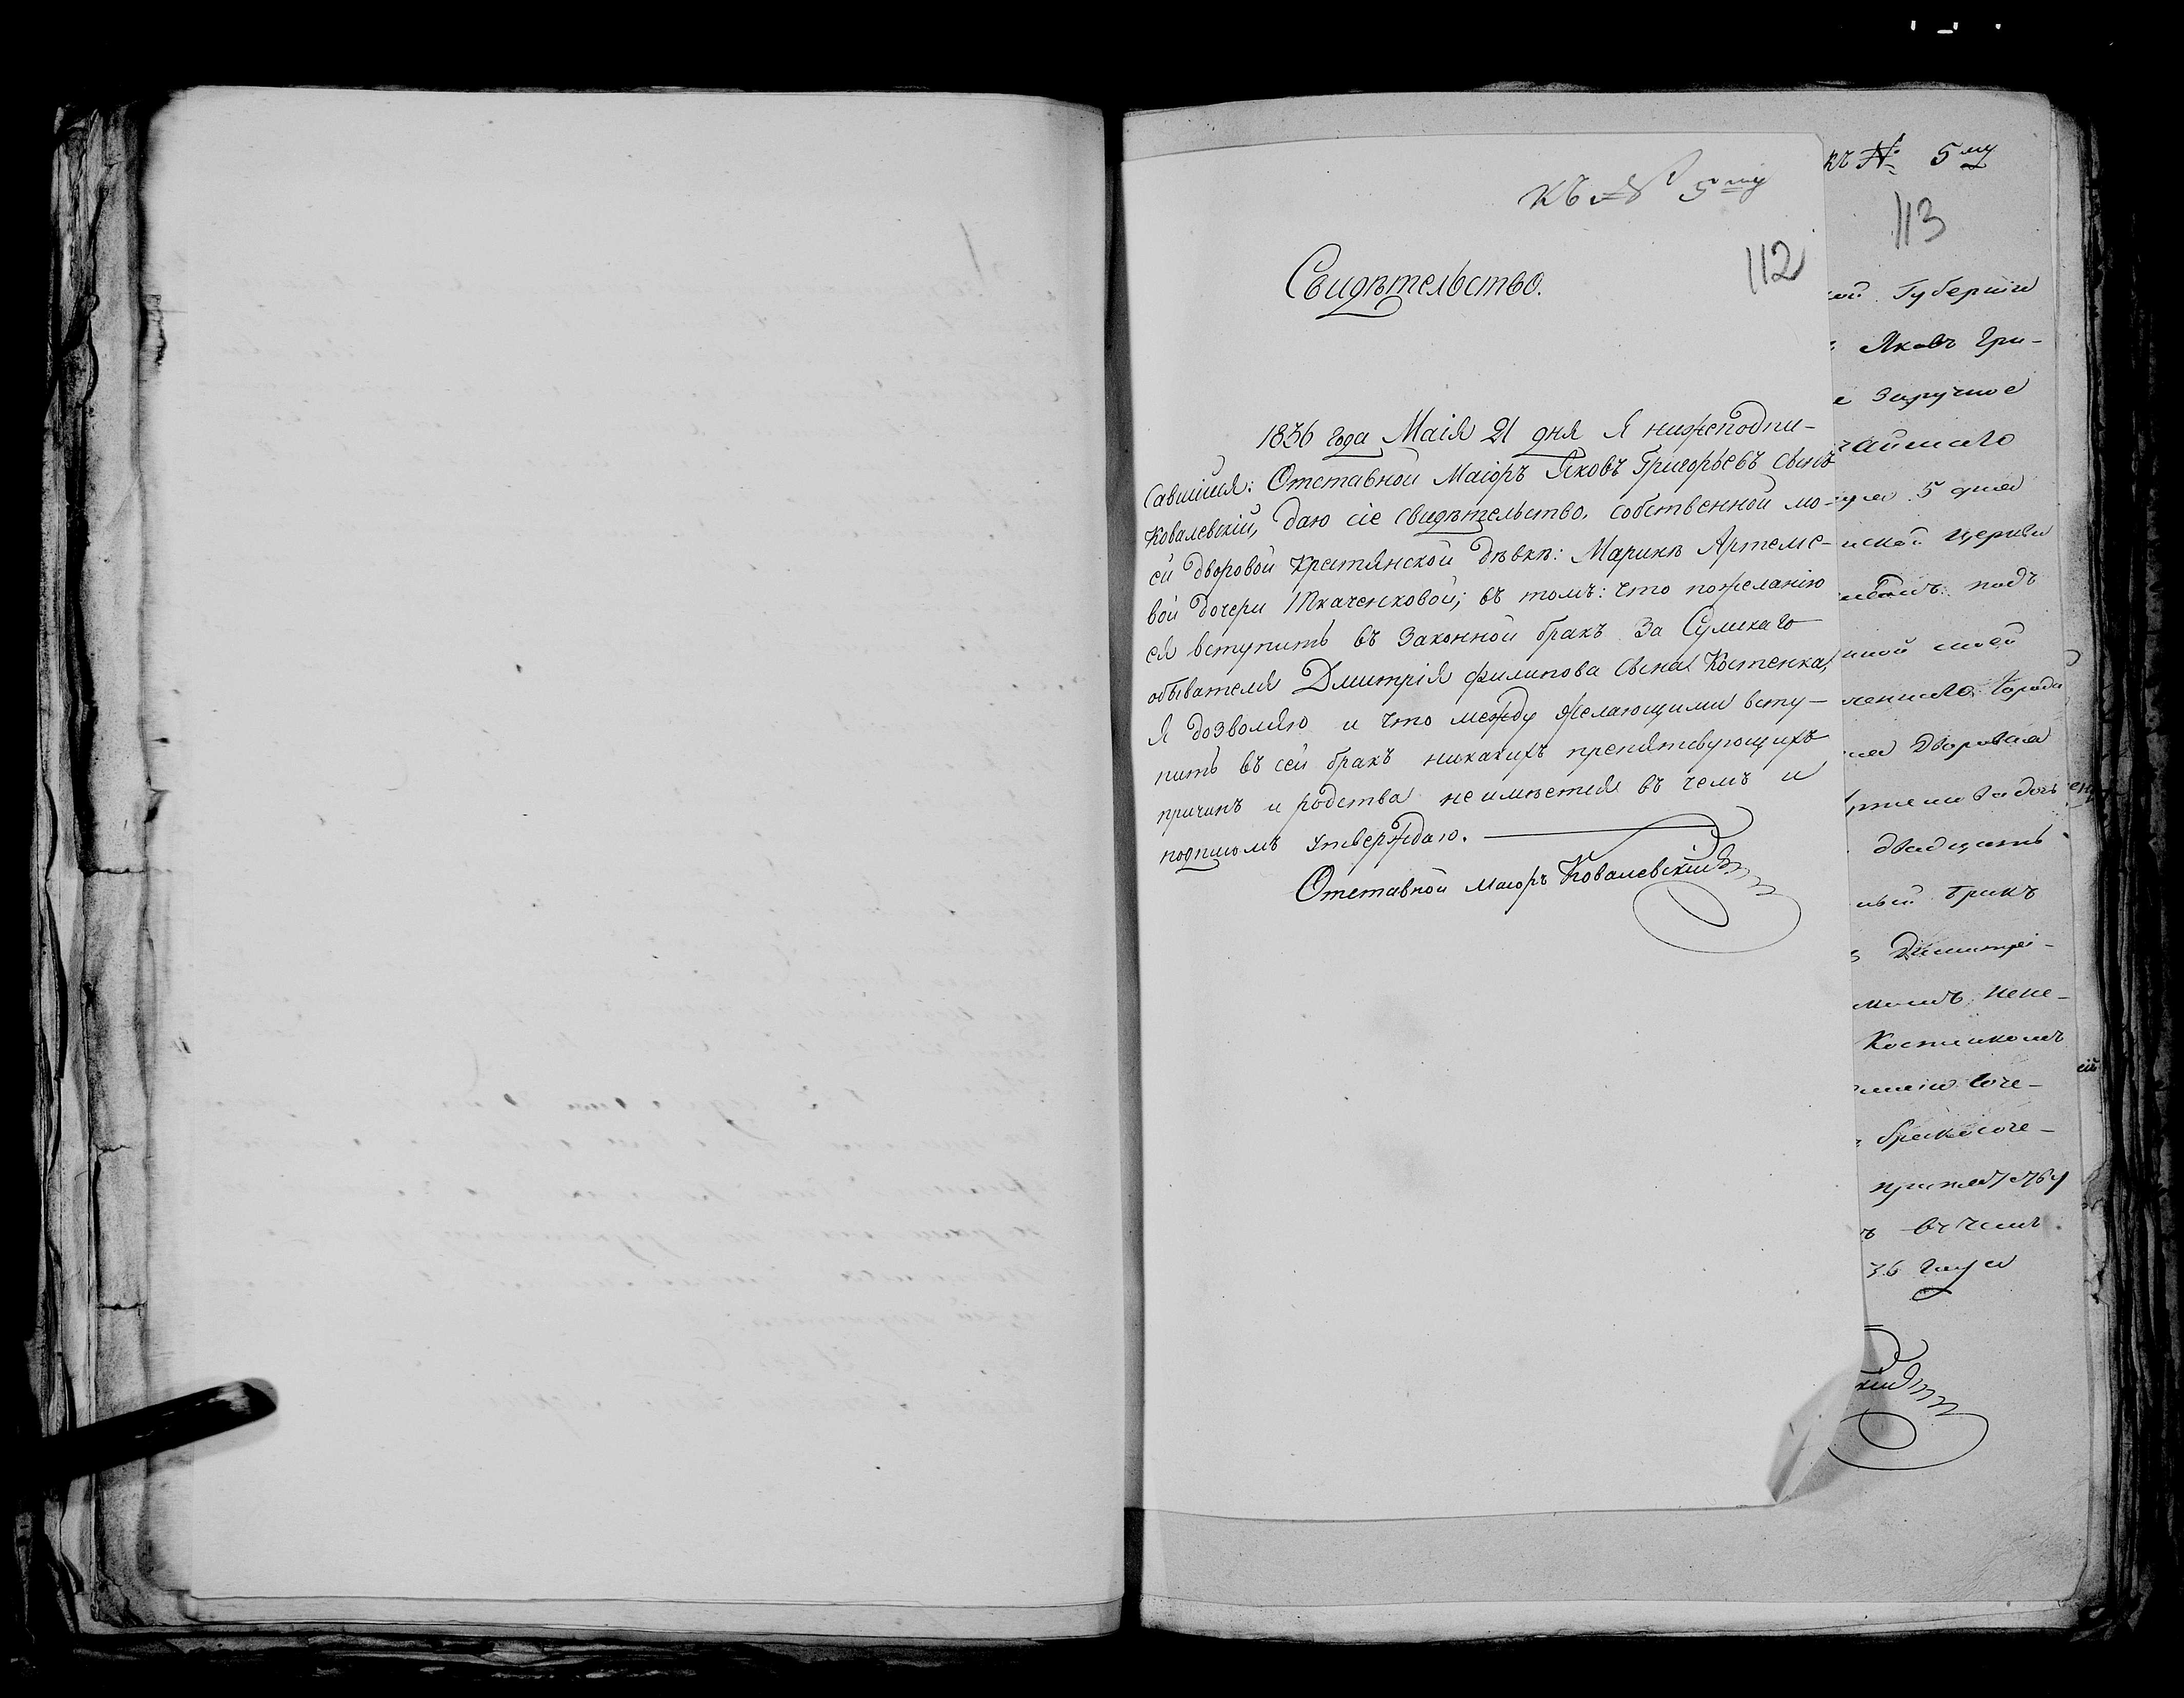 къ № 5му
112
Свидѣтельство.
1836 года Маія 21 дня я нижеподпи-
савшійся: Отставной Маіоръ Яковъ Григорьевъ сынъ
Ковалевскій, даю сіе свидѣтельство, собственной мо-
ей дворовой крестьянской дѣвкѣ: Маринѣ Артеме-
вой дочери Ткаченковой; въ томъ: что пожеланію
ея вступить въ Законной бракъ За Сумскаго
обывателя Дмитрія Филипова сына Костенка,
я дозволяю и что между желающими всту-
пить въ сей бракъ никакихъ препятсвующихъ
причинъ и родства неимѣется въ чемъ и
подписомъ утверждаю.
Отставной Маіоръ Ковалевскій
къ № 5му
113
ой Губерніи
Яковъ Гри-
е Заручное
чайшаго
5 дня
ской Церкви
подъ
ной моей
города
Дворовая
двадцать
ный бракъ
Димитрі-
Костенкомъ
соче-
бракосоче-
въ чемъ
36 года